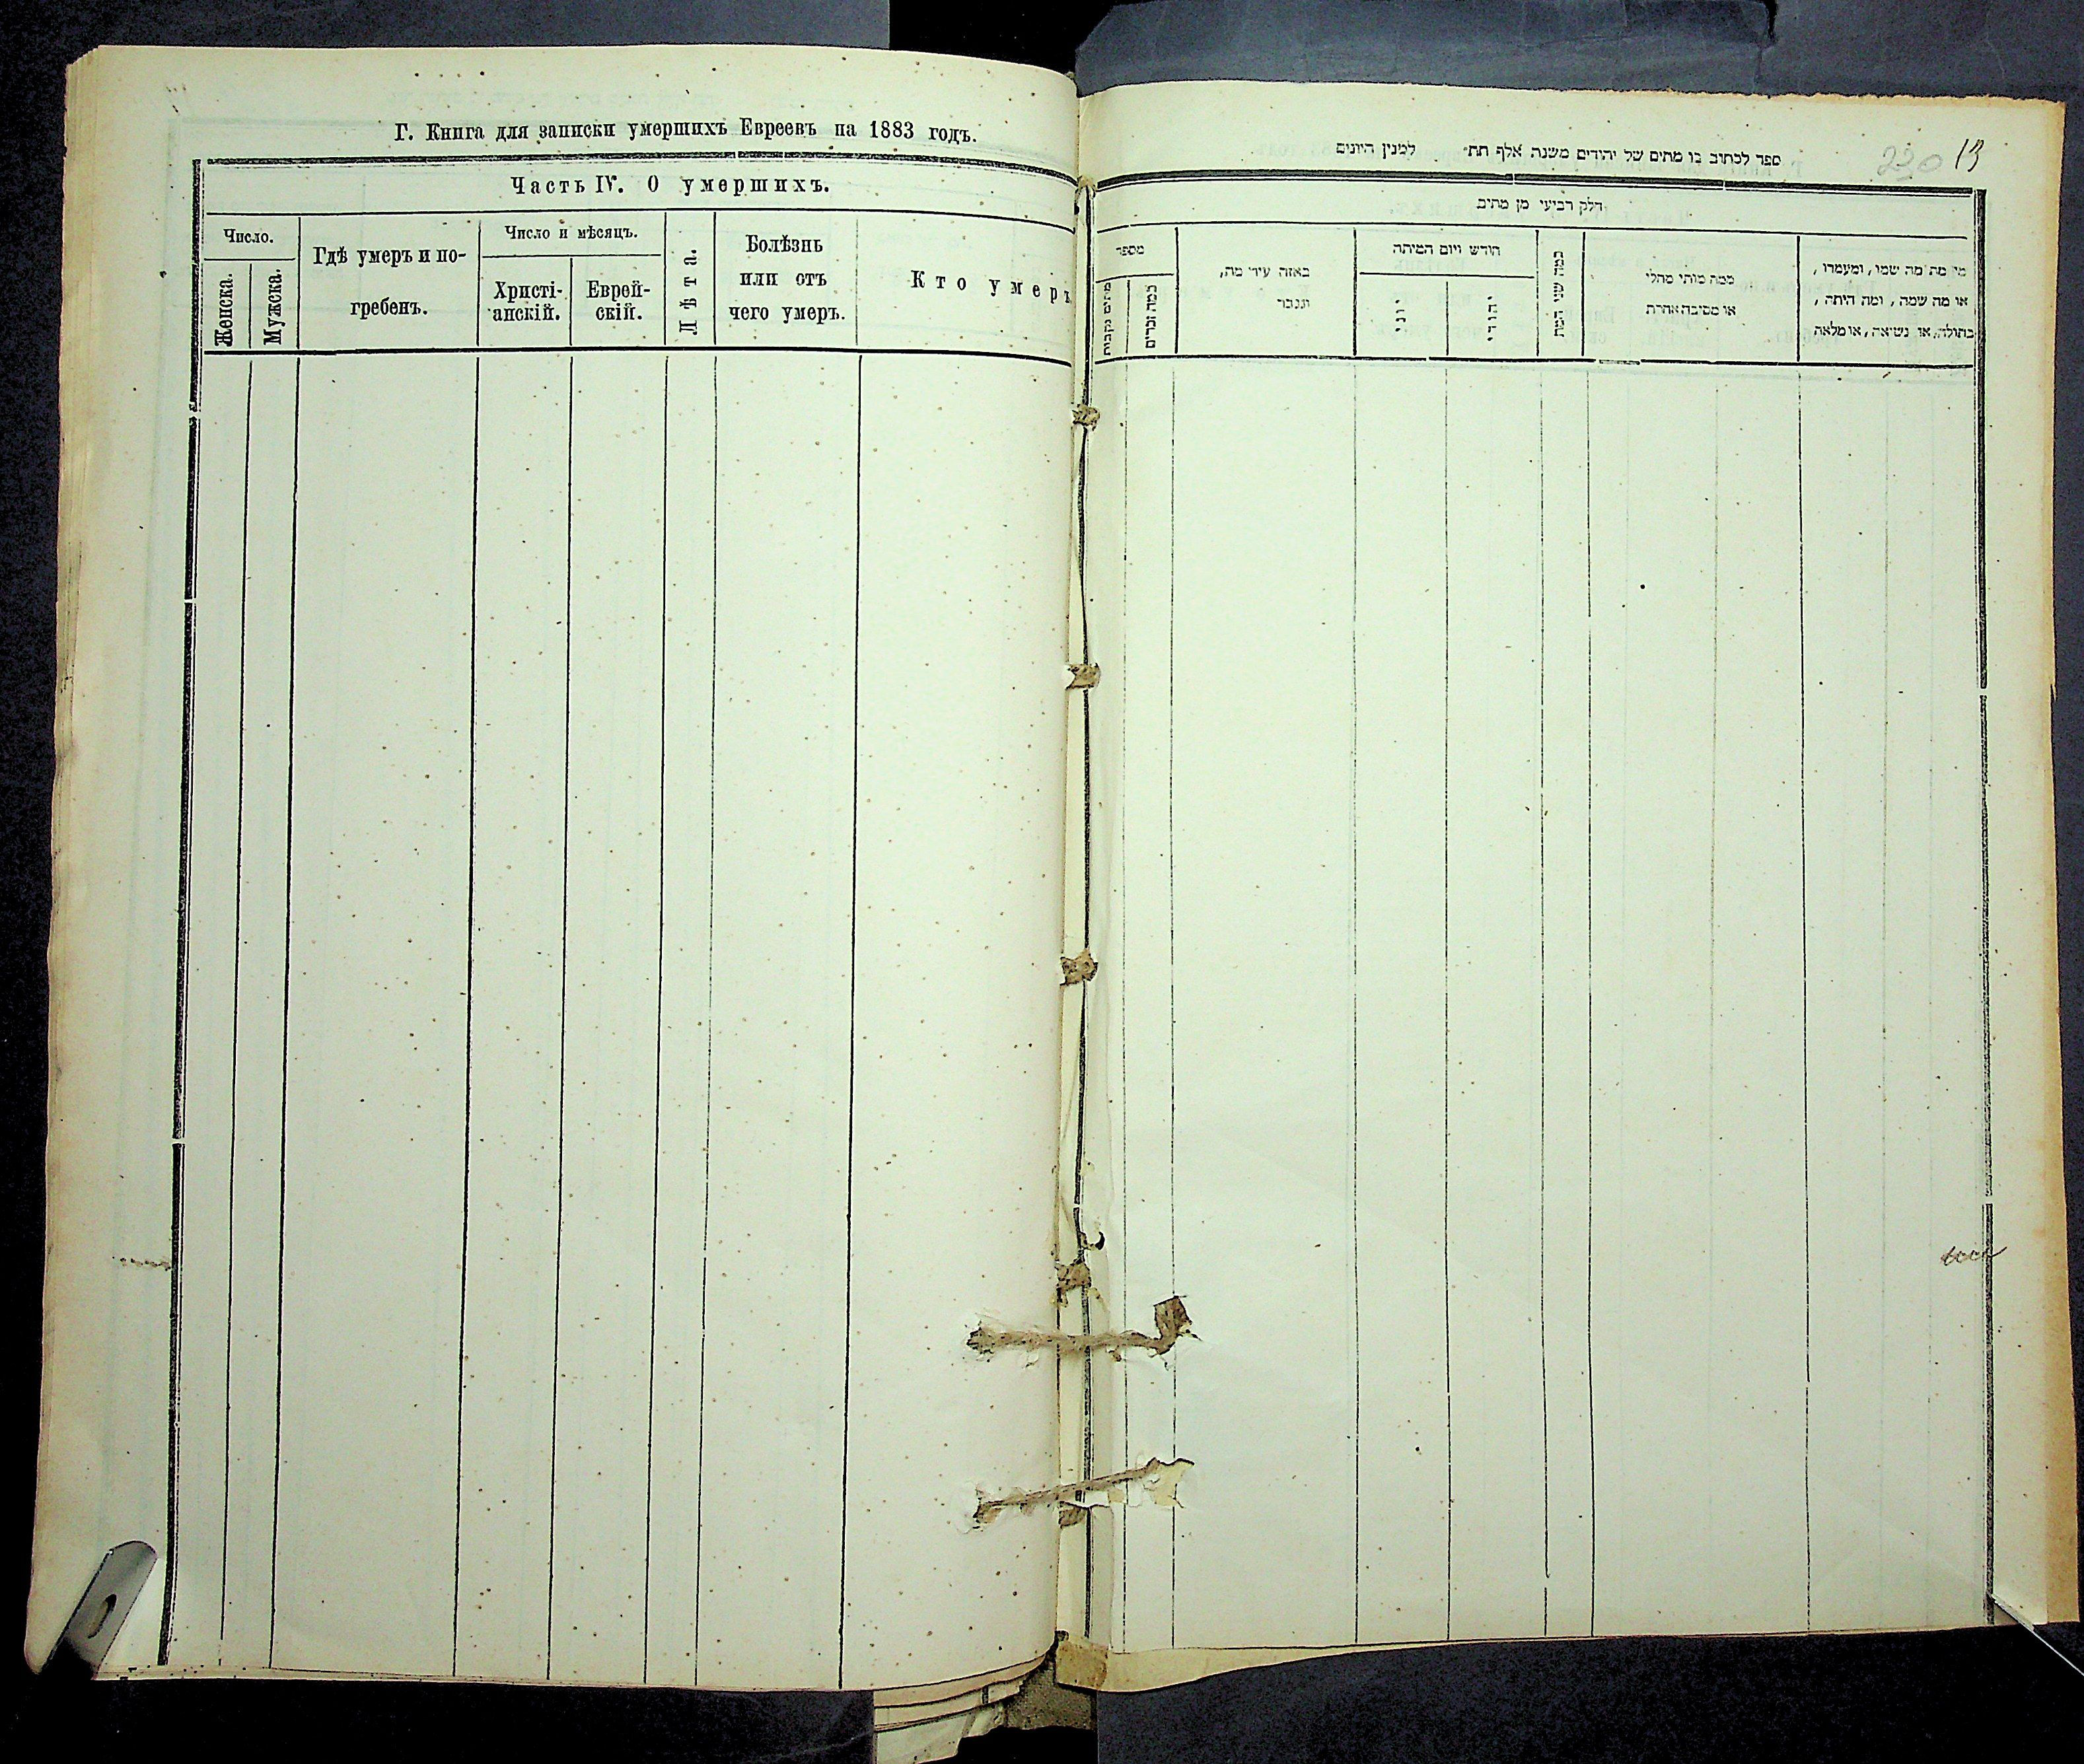 Г. Книга для записки умершихъ Евреевъ на 1883 годъ.
Часть IV. О умершихъ.
Число.
Женска.
Мужска.
Гдѣ умеръ и по-
гребенъ.
Число и мѣсяцъ.
Христі-
анскій.
Еврей-
скій.
Лѣта.
Болѣзнь
или отъ
чего умеръ.
Кто умеръ
ספר לכתוב בו מתים של יהודים משנת אלף תת״ למנין היונים
230 13
חלק רביעי מן מתים
מספר
מתים נקבות
כמה זכרים
באזה עיר מת,
ונקבר
חודש ויום המיתה
יוני
יהודי
כמה שני המת
ממה מותו מחלי
או מסיבה אחרת
מי מת מה שמו, ומעמדו,
או מה שמה, ומה היתה,
בתולה, או נשואה, או מלאה